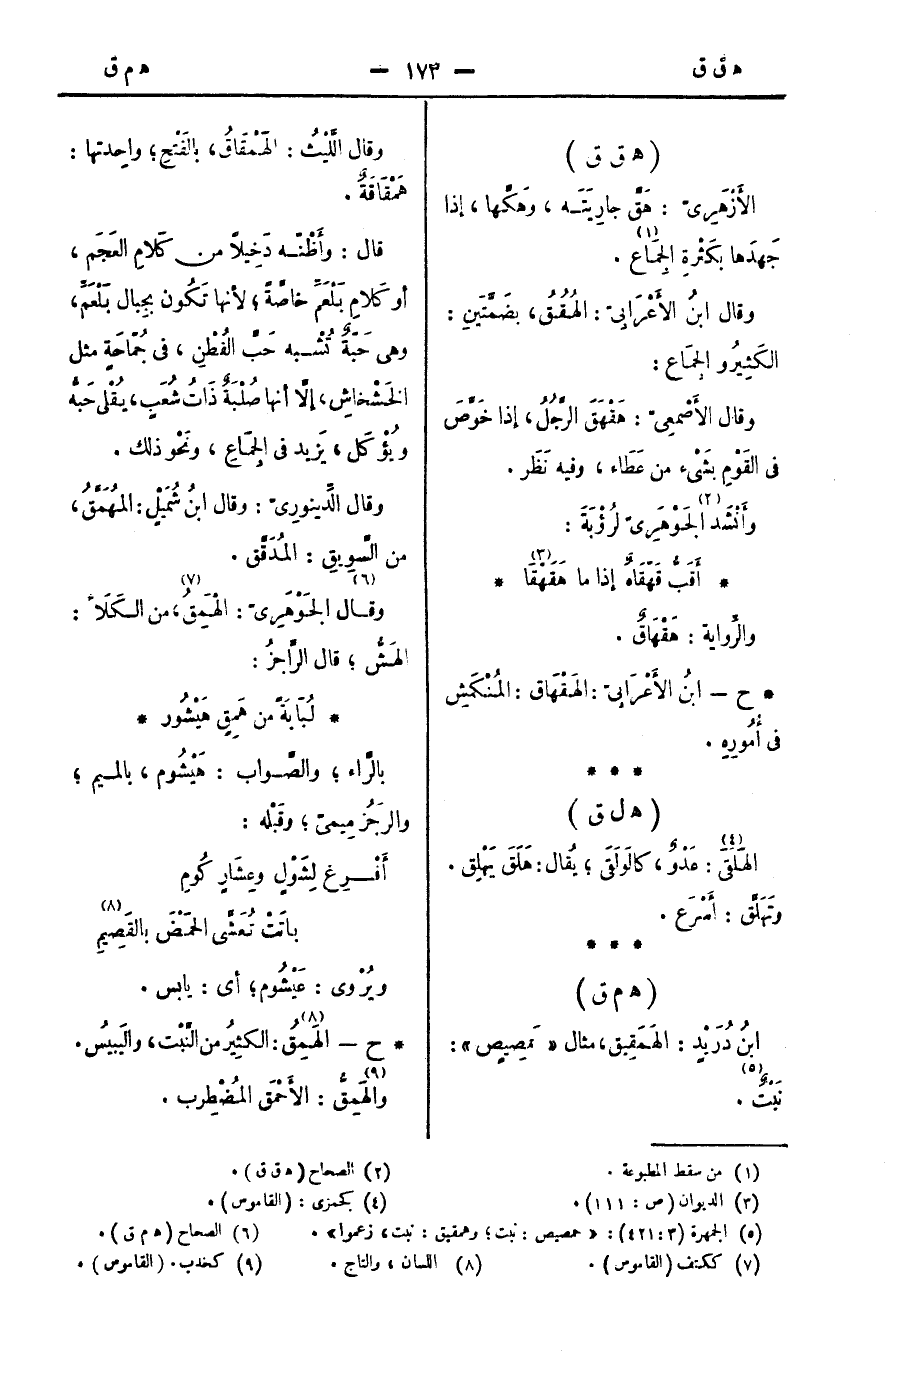 ه ق ق — ١٧٣ — ه م ق
( ه ق ق )
الأَزْهَرِىّ : هَقَّ جارِيَتَـه ، وَهَكَّها ، إذا
جَهدَها بكَثْرةِ الجِمَاع (١) .
وقال ابنُ الأَعْرابِىّ : الهُقُقُ ، بضَمَّتَينِ :
الكَثِيرُو الجِمَاع :
وقال الأَصْمعِىّ : هَقْهَقَ الرَّجُلُ ، إذا خَوَّصَ
فى القَوْم بشَىْء من عَطَاء ، وفيه نَظَر .
وأَنْشَد الجَوْهَرِىّ (٢) لرُؤْبَةَ :
* أَقَبُّ قَهْقَاهٌ إذا ما هَقْهَقَا (٣) *
والرِّواية : هَقْهَاقٌ .
* ح — ابنُ الأَعْرَابِىّ : الهَقْهَاق : المُنْكَمِش
فى أُمُورِه .
* * *
( ه ل ق )
الهَلَقَى (٤) : عَدْوٌ ، كالوَلَقَى ؛ يُقال : هَلَقَ يَهْلِق .
وتَهَلَّق : أَسْرَع .
* * *
( ه م ق )
ابنُ دُرَيْدٍ : الهَمَقِيق ، مثال « حَمَصِيص » :
نَبْتٌ (٥) .
وقال اللَّيْثُ : الهَمْقَاقُ ، بالفَتْحِ ؛ واحِدتها :
هَمْقَاقَةٌ .
قال : وأَظُنّـه دَخِيلاً من كَلامِ العَجَم ،
أو كَلامِ بَلْعَمَّ خاصَّةً ؛ لأنها تَكُون بجِبال بَلْعَمَّ ،
وهى حَبّةٌ تُشْـبه حَبَّ القُطْنِ ، فى جُمّاحَةٍ مثل
الخَشْخاشِ ، إلّا أنها صُلْبَةٌ ذَاتُ شُعَبٍ ، يُقْلَى حَبُّه
ويُؤْكَل ، يَزيد فى الجِمَاعِ ، ونَحْو ذلك .
وقال الدِّينورِىّ : وقال ابنُ شُمَيْلٍ : المُهَمَّقُ ،
من السَّوِيقِ : المُدَقَّق .
وقـال الجَوْهَرِىّ (٦) : الهَمِقُ (٧) ، من الكَلَأ :
الهَشُّ ؛ قال الرَّاجزُ :
* لُبَابَةً من هَمِقٍ هَيْشُور *
بالرَّاء ؛ والصَّـواب : هَيْشُوم ، بالمـيم ؛
والرجَزُ مِيمىّ ؛ وقَبْله :
أَفْـرِغ لِشَوْلٍ وعِشَارٍ كُومِ
باتَتْ تُعَشَّى الحَمْضَ بالقَصِيمِ (٨)
ويُرْوى : عَيْشُوم ؛ أى : يابس .
* ح — الهَمِقُ (٨) : الكثِيرُ من النَّبْت ، واليَبِيسُ .
والهِمَقُّ (٩) : الأَحْمَق المُضْطرِب .
(١) من سقط المطبوعة . (٢) الصحاح ( ه ق ق ) .
(٣) الديوان ( ص : ١١١ ) . (٤) كجمزى : ( القاموس ) .
(٥) الجمهرة ( ٣ : ٤٢١ ) : « حمصيص : نبت ؛ وهمقيق : نبت ، زعموا » . (٦) الصحاح ( ه م ق ) .
(٧) ككتف ( القاموس ) . (٨) اللسان ، والتاج . (٩) كخدب . ( القاموس ) .